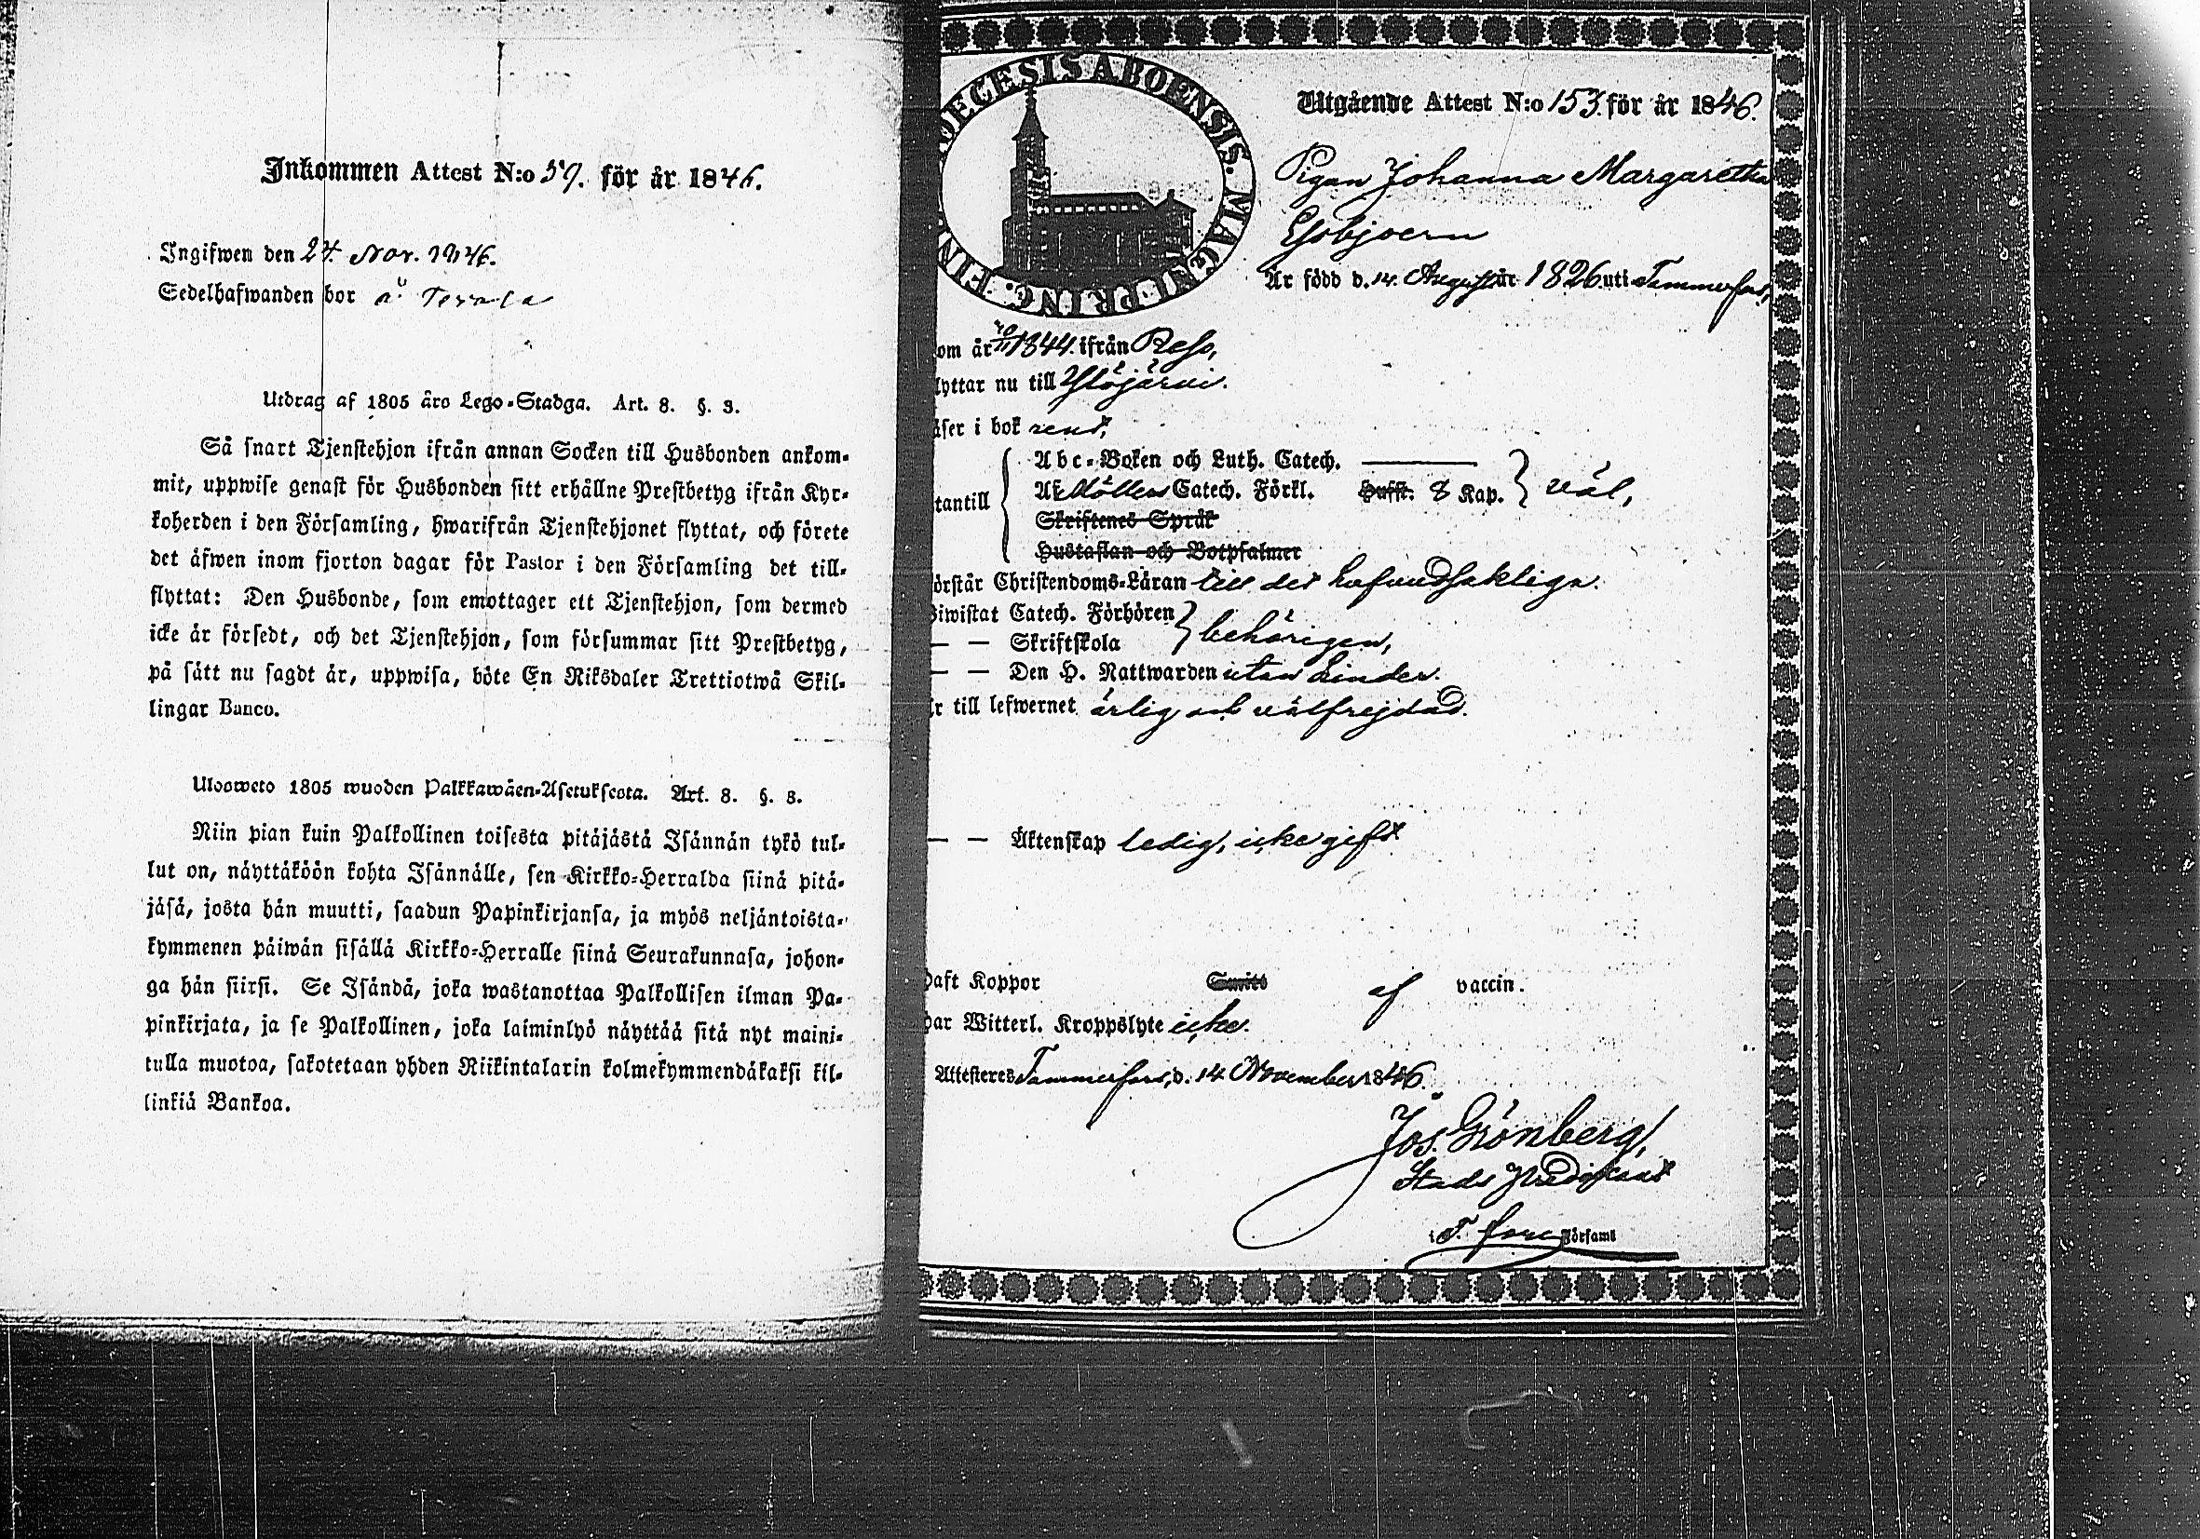 Inkommen Attest N:o 59. för år 1846.
Ingifwen den 24. Nov. 1846.
Sedelhafwanden bor å
Utdrag af 1805 års Lego-Stadga. Art. 8. §. 3.
Så snart Tjenstehjon ifrån annan Socken till Husbonden ankom-
mit, uppwise genast för Husbonden sitt erhållne Prestbetyg ifrån Kyr-
koherden i den Församling, hwarifrån Tjenstehjonet flyttat, och förete
det äfwen inom fjorton dagar för Pastor i den Församling det till-
flyttat: Den Husbonde, som emottager ett Tjenstehjon, som dermed
icke är försedt, och det Tjenstehjon, som försummar sitt Prestbetyg,
på sätt nu sagdt är, uppwisa, böte En Riksdaler Trettiotwå Skil-
lingar Banco.
Uloswets 1805 wuoden Palkkawäen-Asetuksesta. Art. 8. §. 3.
Niin pian kuin Palkollinen toisesta pitäjästä Isännän tykö tul-
lut on, näyttäköön kohta Isännälle, sen Kirkko-Herralda siinä pitä-
jäsä, josta hän muutti, saadun Papinkirjansa, ja myös neljäntoista-
kymmenen päiwän sisällä Kirkko-Herralle siinä Seurakunnasa, johon-
ga hän siirsi. Se Isändä, joka wastanottaa Palkollisen ilman Pa-
pinkirjata, ja se Palkollinen, joka laiminlyö näyttää sitä nyt maini-
tulla muotoa, sakotetaan yhden Riikintalarin kolmekymmendäkaksi kil-
linkiä Bankoa.
DIOECESIS ABOENSIS. MAGNI PRINC. FIN
Utgående Attest N:o 153. för år 1846.
Pigan Johanna Margaretha
Esbjoern
Är född d. 14. Augusti år 1826 uti Tammerfors,
om år 1844. ifrån Reso,
lyttar nu till Ylöjärvi.
äser i bok rent,
tantill
Abc-Boken och Luth. Catech.
Af Möllers Catech. Förkl. Hufst. 8 Kap. väl,
Skriftenes Språk
Hustaflan och Botpsalmer
örstår Christendoms-Läran till det hufvudsakliga.
Biwistat Catech. Förhören
— — Skriftskola behörigen,
— — Den H. Nattwarden utan hinder.
r till lefwernet ärlig och välfrejdad.
— — Äktenskap ledig, icke gift
Haft Koppor Smitt af vaccin.
Har Witterl. Kroppslyte icke.
Attesteres Tammerfors, d. 14 November 1846.
Jos. Grönberg,
Stads Predikant
i T. fors Församl